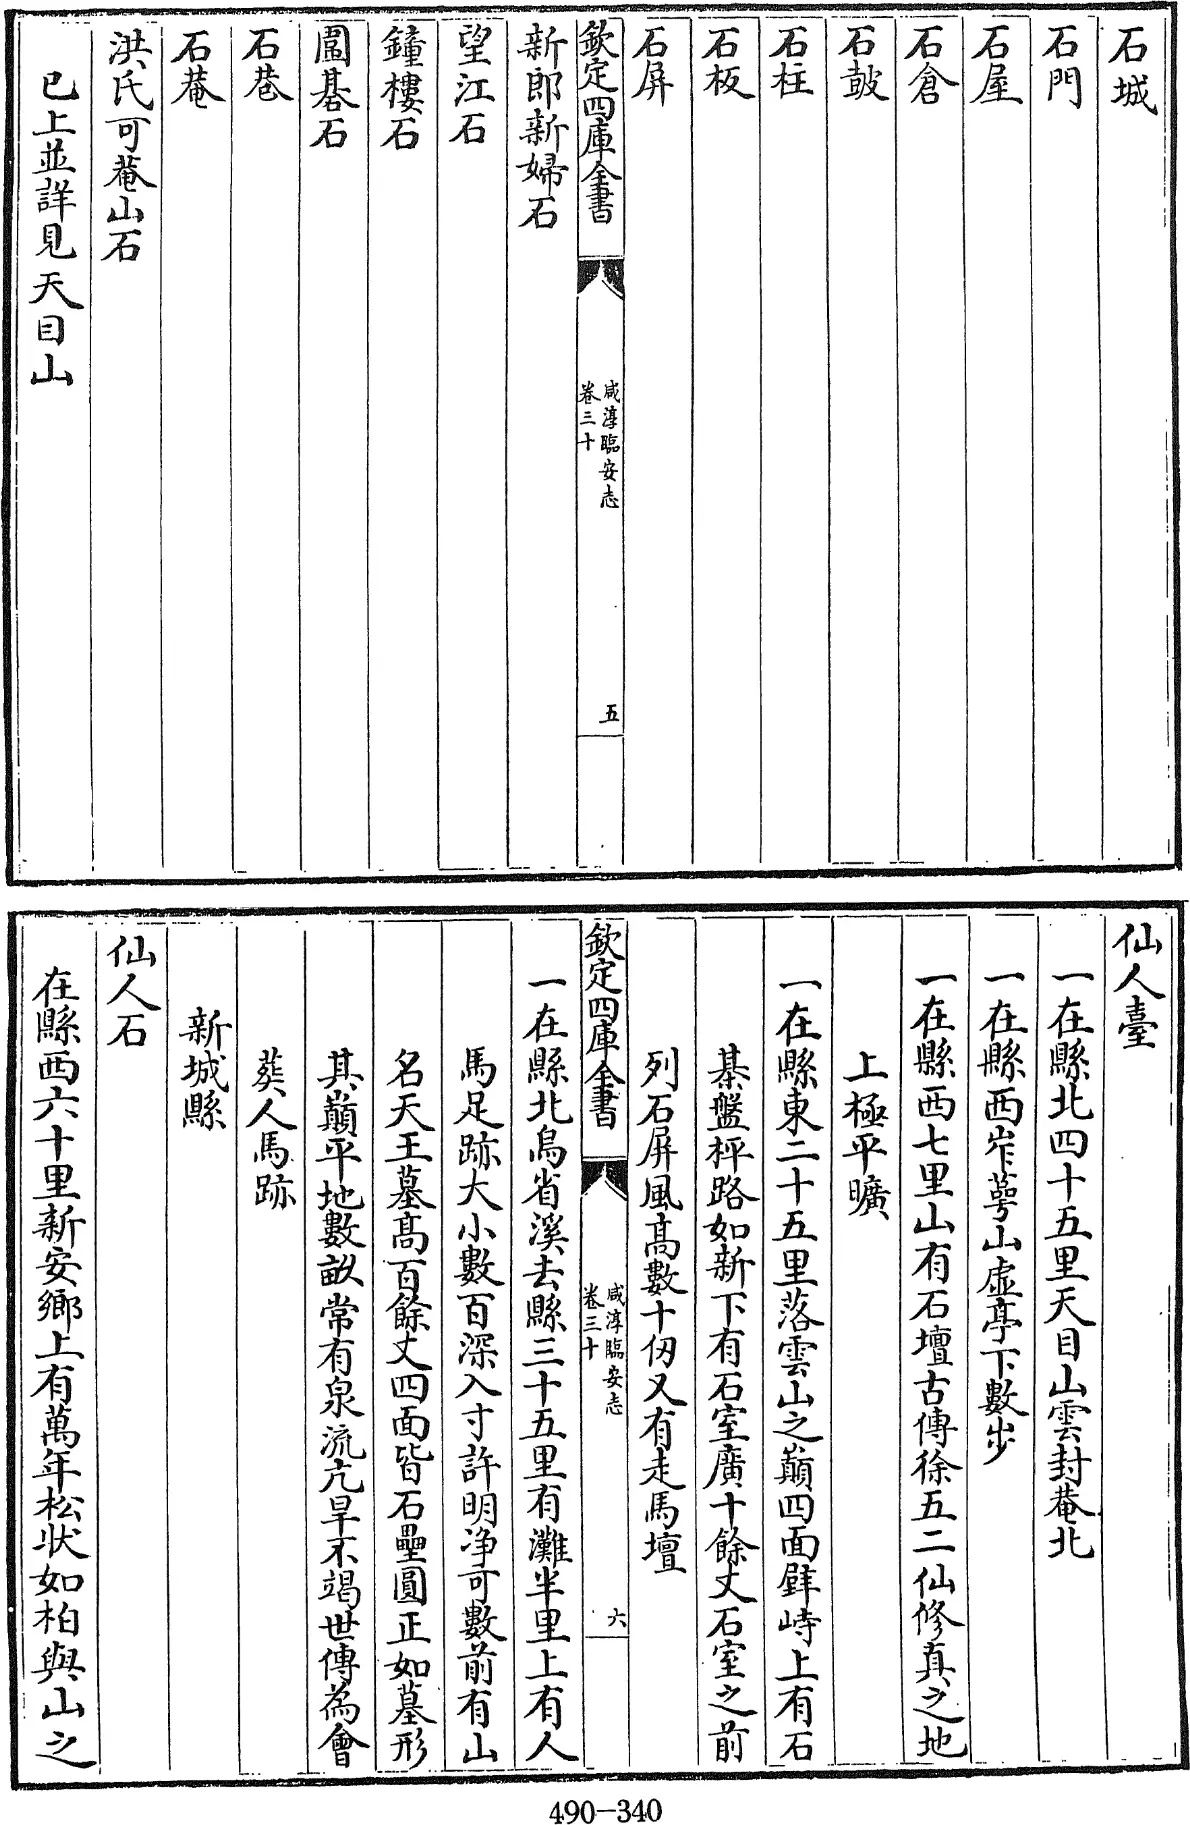 石城
石門
石屋
石倉
石皷
石柱
石板
石屏
欽定四庫全書
咸淳臨安志
卷三十
五
新郎新婦石
望江石
鐘樓石
圍碁石
石巷
石菴
洪氏可菴山石
已上並詳見天目山
仙人臺
一在縣北四十五里天目山雲封菴北
一在縣西岝蕚山虛亭下數步
一在縣西七里山有石壇古傳徐五二仙修真之地
上極平曠
一在縣東二十五里落雲山之巔四面壁峙上有石
棊盤枰路如新下有石室廣十餘丈石室之前
列石屏風高數十仭又有走馬壇
欽定四庫全書
咸淳臨安志
卷三十
六
一在縣北烏省溪去縣三十五里有灘半里上有人
馬足跡大小數百深入寸許明净可數前有山
名天王墓高百餘丈四面皆石壘圓正如墓形
其巔平地數畝常有泉流亢旱不竭世傳為會
葬人馬跡
新城縣
仙人石
在縣西六十里新安鄉上有萬年松狀如柏與山之
490-340